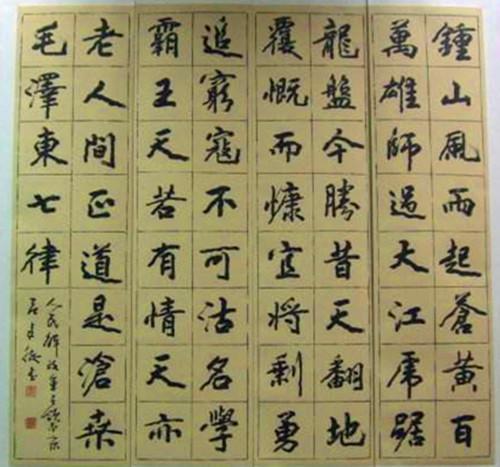 鍾山風雨起蒼黃百
萬雄師過大江虎踞
龍盤今勝昔天翻地
覆慨而慷宜將剩勇
追窮寇不可沽名學
霸王天若有情天亦
老人間正道是滄桑
毛澤東七律
人民解放軍占領南京